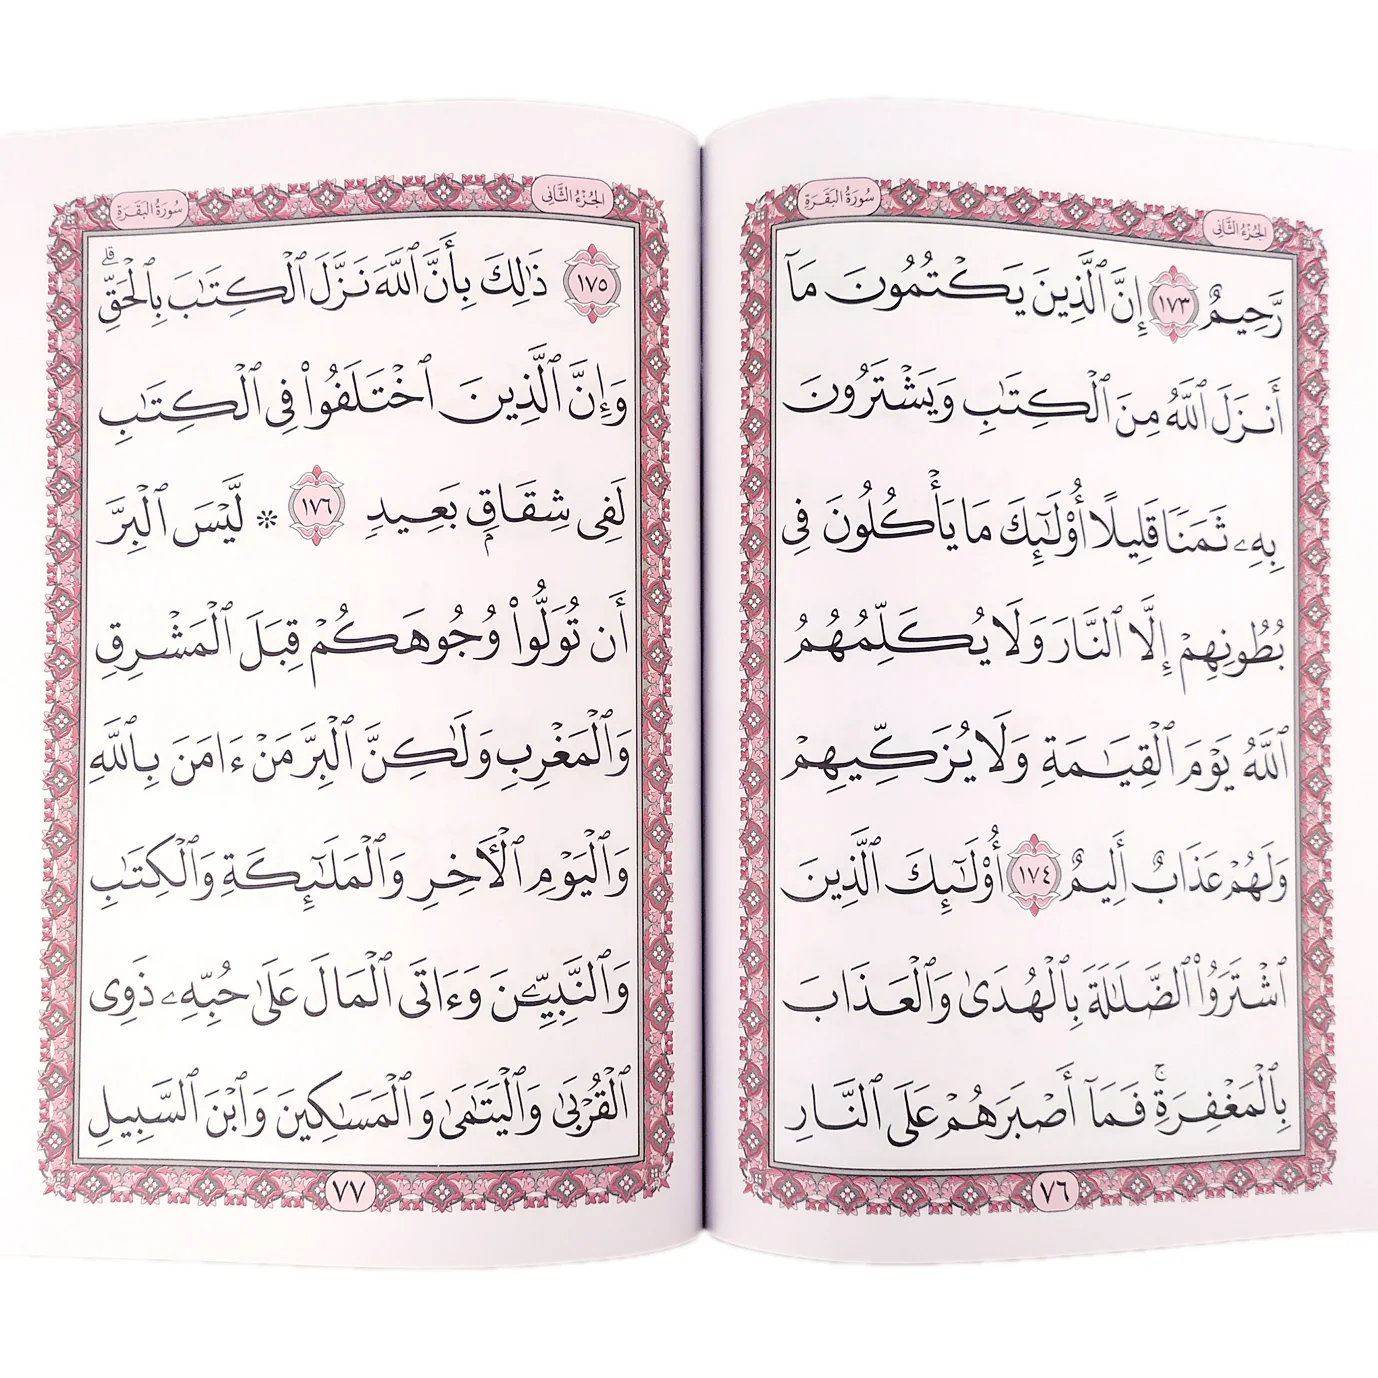 سُورَةُ البَقَرَةِ
الجُزْءُ الثَّانِى
رَّحِيمٌ ١٧٣ إِنَّ ٱلَّذِينَ يَكْتُمُونَ مَآ
أَنزَلَ ٱللَّهُ مِنَ ٱلْكِتَٰبِ وَيَشْتَرُونَ
بِهِۦ ثَمَنًا قَلِيلًا أُو۟لَٰٓئِكَ مَا يَأْكُلُونَ فِى
بُطُونِهِمْ إِلَّا ٱلنَّارَ وَلَا يُكَلِّمُهُمُ
ٱللَّهُ يَوْمَ ٱلْقِيَٰمَةِ وَلَا يُزَكِّيهِمْ
وَلَهُمْ عَذَابٌ أَلِيمٌ ١٧٤ أُو۟لَٰٓئِكَ ٱلَّذِينَ
ٱشْتَرَوُا۟ ٱلضَّلَٰلَةَ بِٱلْهُدَىٰ وَٱلْعَذَابَ
بِٱلْمَغْفِرَةِ ۚ فَمَآ أَصْبَرَهُمْ عَلَى ٱلنَّارِ
٧٦
الجُزْءُ الثَّانِى
سُورَةُ البَقَرَةِ
١٧٥ ذَٰلِكَ بِأَنَّ ٱللَّهَ نَزَّلَ ٱلْكِتَٰبَ بِٱلْحَقِّ ۗ
وَإِنَّ ٱلَّذِينَ ٱخْتَلَفُوا۟ فِى ٱلْكِتَٰبِ
لَفِى شِقَاقٍۭ بَعِيدٍ ١٧٦ * لَّيْسَ ٱلْبِرَّ
أَن تُوَلُّوا۟ وُجُوهَكُمْ قِبَلَ ٱلْمَشْرِقِ
وَٱلْمَغْرِبِ وَلَٰكِنَّ ٱلْبِرَّ مَنْ ءَامَنَ بِٱللَّهِ
وَٱلْيَوْمِ ٱلْـَٔاخِرِ وَٱلْمَلَٰٓئِكَةِ وَٱلْكِتَٰبِ
وَٱلنَّبِيِّۦنَ وَءَاتَى ٱلْمَالَ عَلَىٰ حُبِّهِۦ ذَوِى
ٱلْقُرْبَىٰ وَٱلْيَتَٰمَىٰ وَٱلْمَسَٰكِينَ وَٱبْنَ ٱلسَّبِيلِ
٧٧